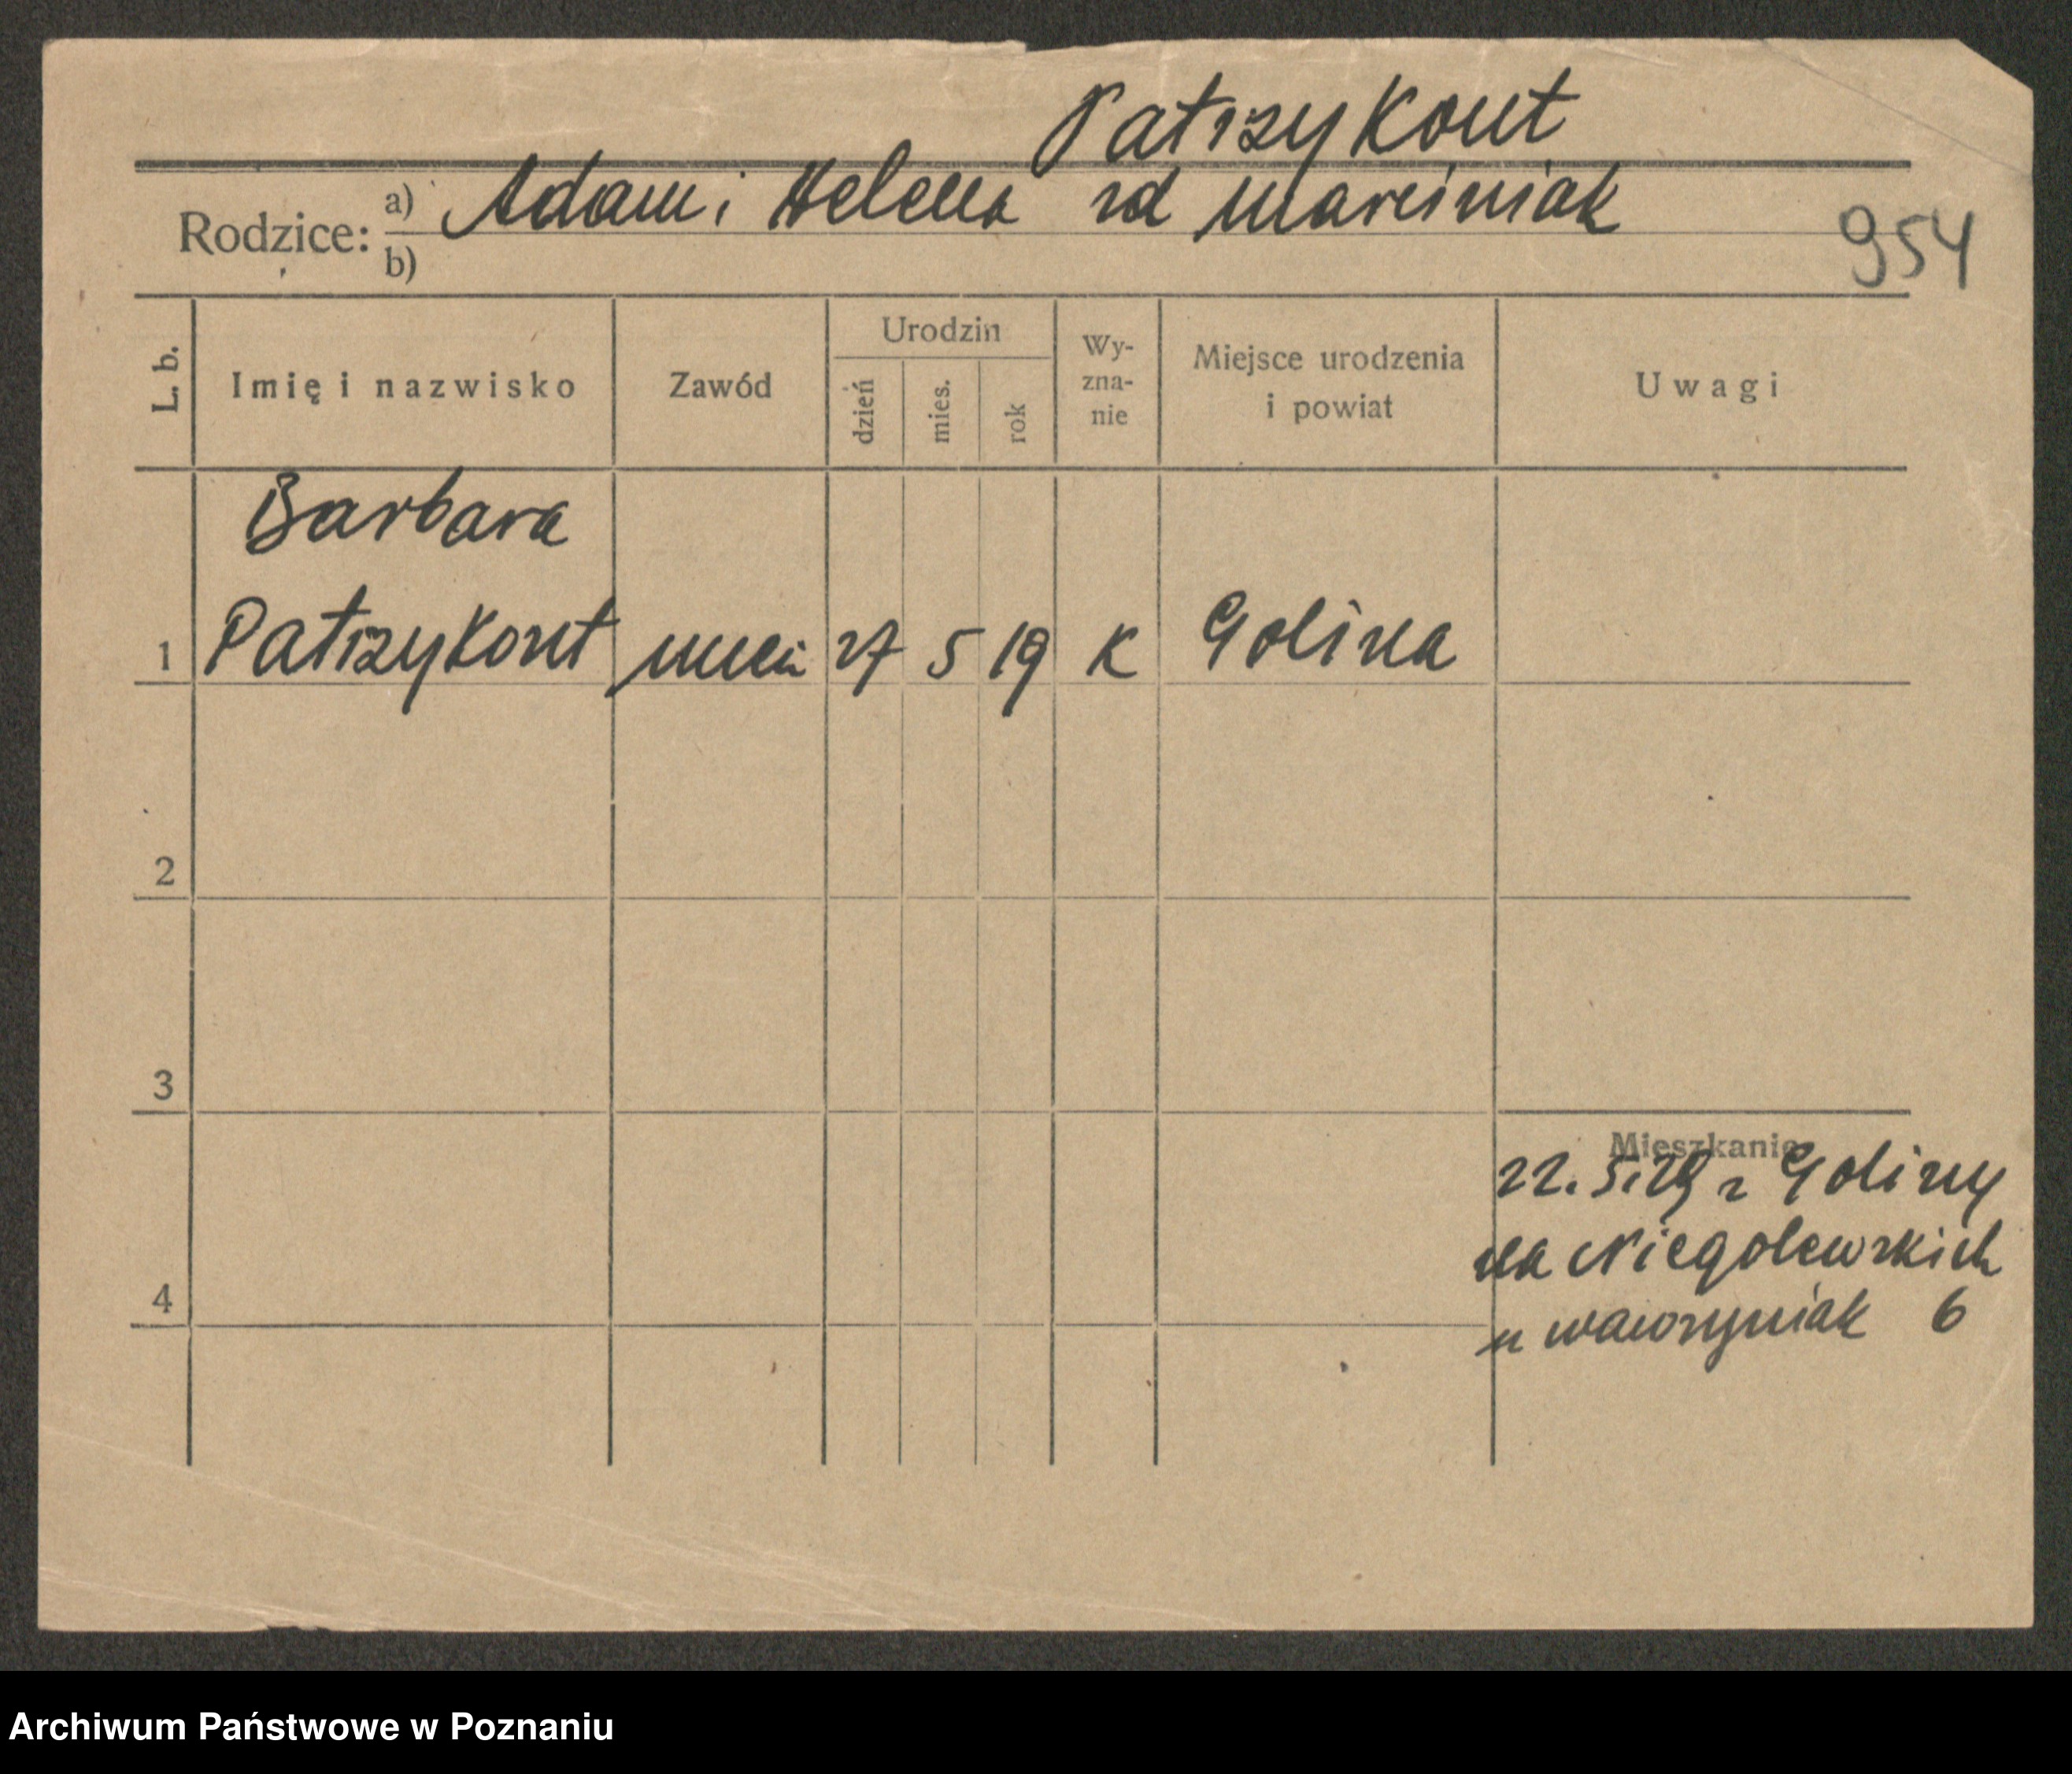 PatrzyKont
Rodzice: a) Adam i Helena zd Marciniak
b)
954
L. b. Imię i nazwisko Zawód Urodzin dzień mies. rok Wy-zna-nie Miejsce urodzenia i powiat Uwagi
Barbara
1 PatrzyKont 27 5 19 K Golina
2
3
Mieszkanie
22.5.29 z Goliny
na Niegolewskich
4
u Wawrzyniak 6
Archiwum Państwowe w Poznaniu